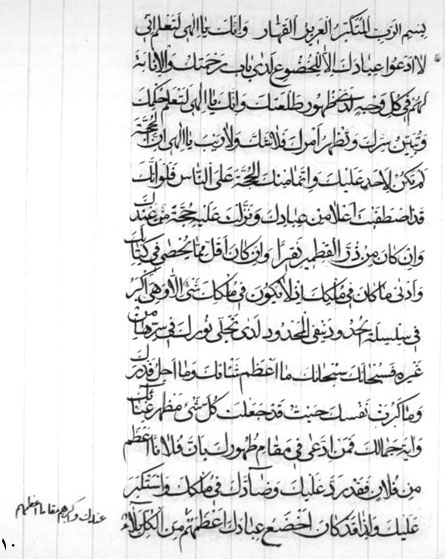 بسم الرب المتكبر العزيز القهار وانك يا الهى لتعلم انى
لا ادعوا عبادك الا للخضوع لدى باب رحمتك والانابة
لهم فى كل وجه لدى ظهور طلعتك وانك يا الهى لتعلم حكمك
وتبين سرك وتظهر امرك فلا شك ولا ريب يا الهى ان الحجة
لم تكن لاحد عليك واتمامك الحجة على الناس فلو انك
قد اصطفيت احدا من عبادك ونزلت عليه حجة من عندك
وان كان من ذر الفطير نفرا وان كان اقل مما يحصى فى كتابك
وادنى ما كان فى ملكك اذ لا يكون فى ملكك شئ الا وهى اكبر
فى سلسلة الحدود نفى المحدود لدى تجلى نورك فى سرها من
غيره فسبحانك سبحانك ما اعظم شانك وما اجل قدرتك
وما كرزت نفسك حيث قد جعلت كل شئ مظهر عنايتك
واية جمالك فمن ادعى فى مقام ظهورك بان فلانا اعظم
من فلان فقد رد عليك وضادك فى ملكك واستكبر
عليك واذ قد كان اخضع عبادك اعظمهم من الكل لدى
عندك واكرم مقاما منهم
١٠